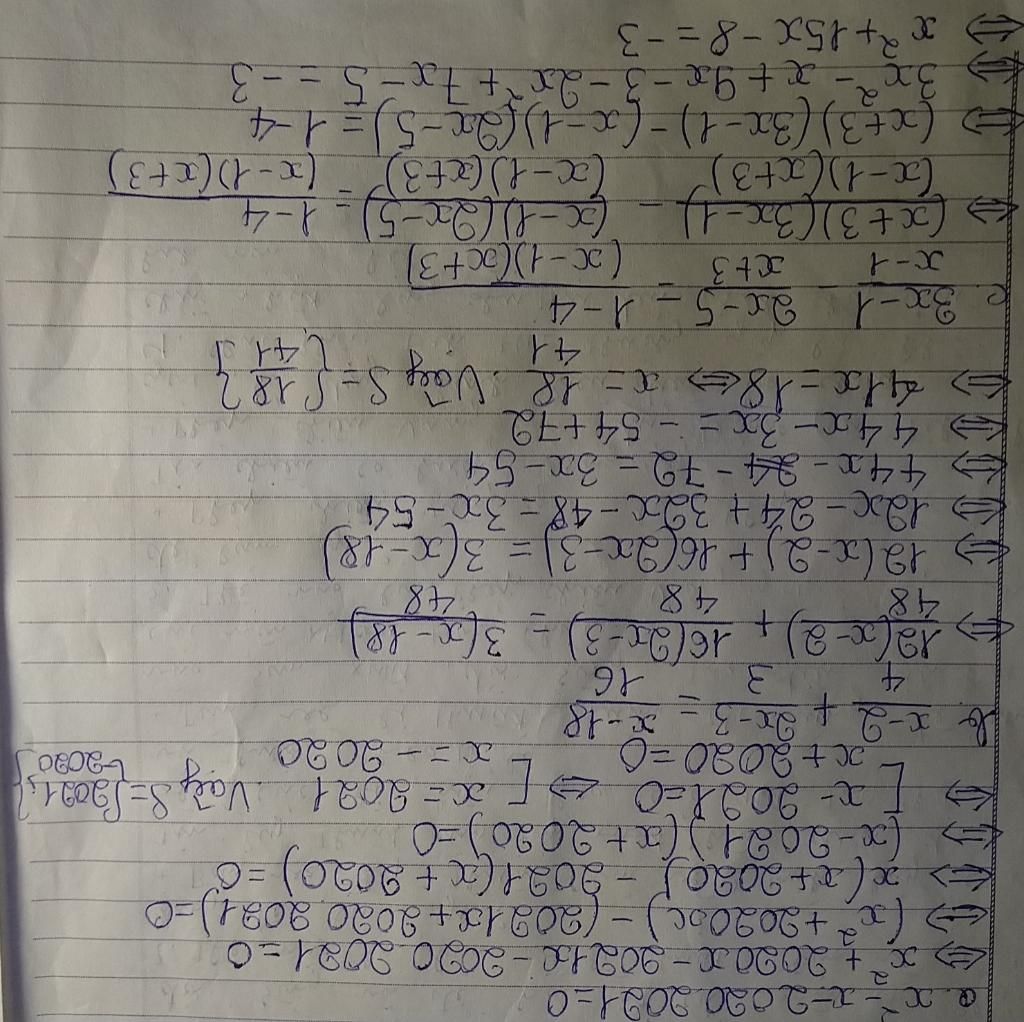 a. x² - x - 2020.2021 = 0
⇔ x² + 2020x - 2021x - 2020.2021 = 0
⇔ (x² + 2020x) - (2021x + 2020.2021) = 0
⇔ x(x + 2020) - 2021(x + 2020) = 0
⇔ (x - 2021)(x + 2020) = 0
⇔ [x - 2021 = 0 ⇔ [x = 2021 . Vậy S = {2021;
x + 2020 = 0 x = -2020 -2020}
b. (x-2)/4 + (2x-3)/3 = (x-18)/16
⇔ 12(x-2)/48 + 16(2x-3)/48 = 3(x-18)/48
⇔ 12(x-2) + 16(2x-3) = 3(x-18)
⇔ 12x - 24 + 32x - 48 = 3x - 54
⇔ 44x - 24 - 72 = 3x - 54
⇔ 44x - 3x = -54 + 72
⇔ 41x = 18 ⇔ x = 18/41 . Vậy S = {18/41}
c. (3x-1)/(x-1) - (2x-5)/(x+3) = (1-4)/((x-1)(x+3))
⇔ (x+3)(3x-1)/((x-1)(x+3)) - (x-1)(2x-5)/((x-1)(x+3)) = (1-4)/((x-1)(x+3))
⇔ (x+3)(3x-1) - (x-1)(2x-5) = 1-4
⇔ 3x² - x + 9x - 3 - 2x² + 7x - 5 = -3
⇔ x² + 15x - 8 = -3